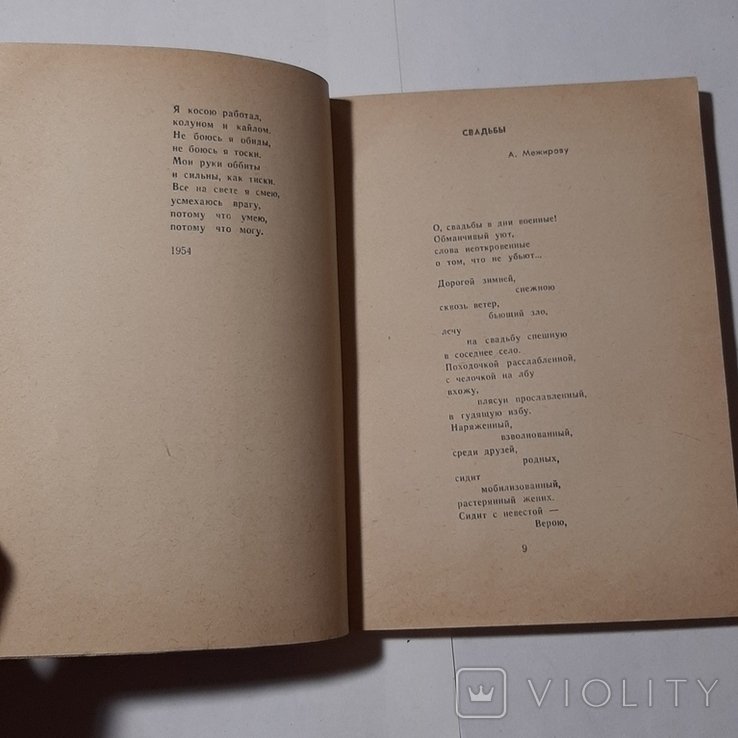 Я косою работал,
колуном и кайлом.
Не боюсь я обиды,
не боюсь я тоски.
Мои руки оббиты
и сильны, как тиски.
Все на свете я смею,
усмехаюсь врагу,
потому что умею,
потому что могу.
1954
СВАДЬБЫ
А. Межирову
О, свадьбы в дни военные!
Обманчивый уют,
слова неоткровенные
о том, что не убьют...
Дорогой зимней,
снежною
сквозь ветер,
бьющий зло,
лечу
на свадьбу спешную
в соседнее село.
Походочкой расслабленной,
с челочкой на лбу
вхожу,
плясун прославленный,
в гудящую избу.
Наряженный,
взволнованный,
среди друзей,
родных,
сидит
мобилизованный,
растерянный жених.
Сидит с невестой —
Верою,
9
VIOLITY